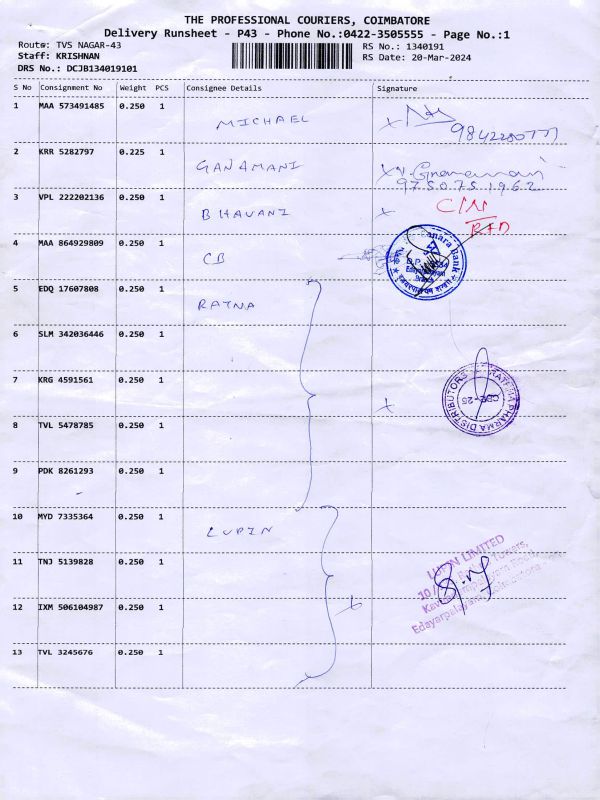 THE PROFESSIONAL COURIERS, COIMBATORE
Delivery Runsheet - P43 - Phone No.:0422-3505555 - Page No.:1
Route: TVS NAGAR-43
Staff: KRISHNAN
DRS No.: DCJB134019101
RS No.: 1340191
RS Date: 20-Mar-2024
S No Consignment No Weight PCS Consignee Details Signature
1 MAA 573491485 0.250 1 MICHAEL
9842280777
2 KRR 5282797 0.225 1 GANAMANI
9750751962
3 VPL 222202136 0.250 1 BHAVANI
4 MAA 864929809 0.250 1 CB
5 EDQ 17607808 0.250 1 RATNA
6 SLM 342036446 0.250 1
7 KRG 4591561 0.250 1
DISTRIBUTORS
CBE-25
8 TVL 5478785 0.250 1
9 PDK 8261293 0.250 1
10 MYD 7335364 0.250 1 LUPIN
LUPIN LIMITED
11 TNJ 5139828 0.250 1
Edayarpalayam,
12 IXM 506104987 0.250 1
13 TVL 3245676 0.250 1